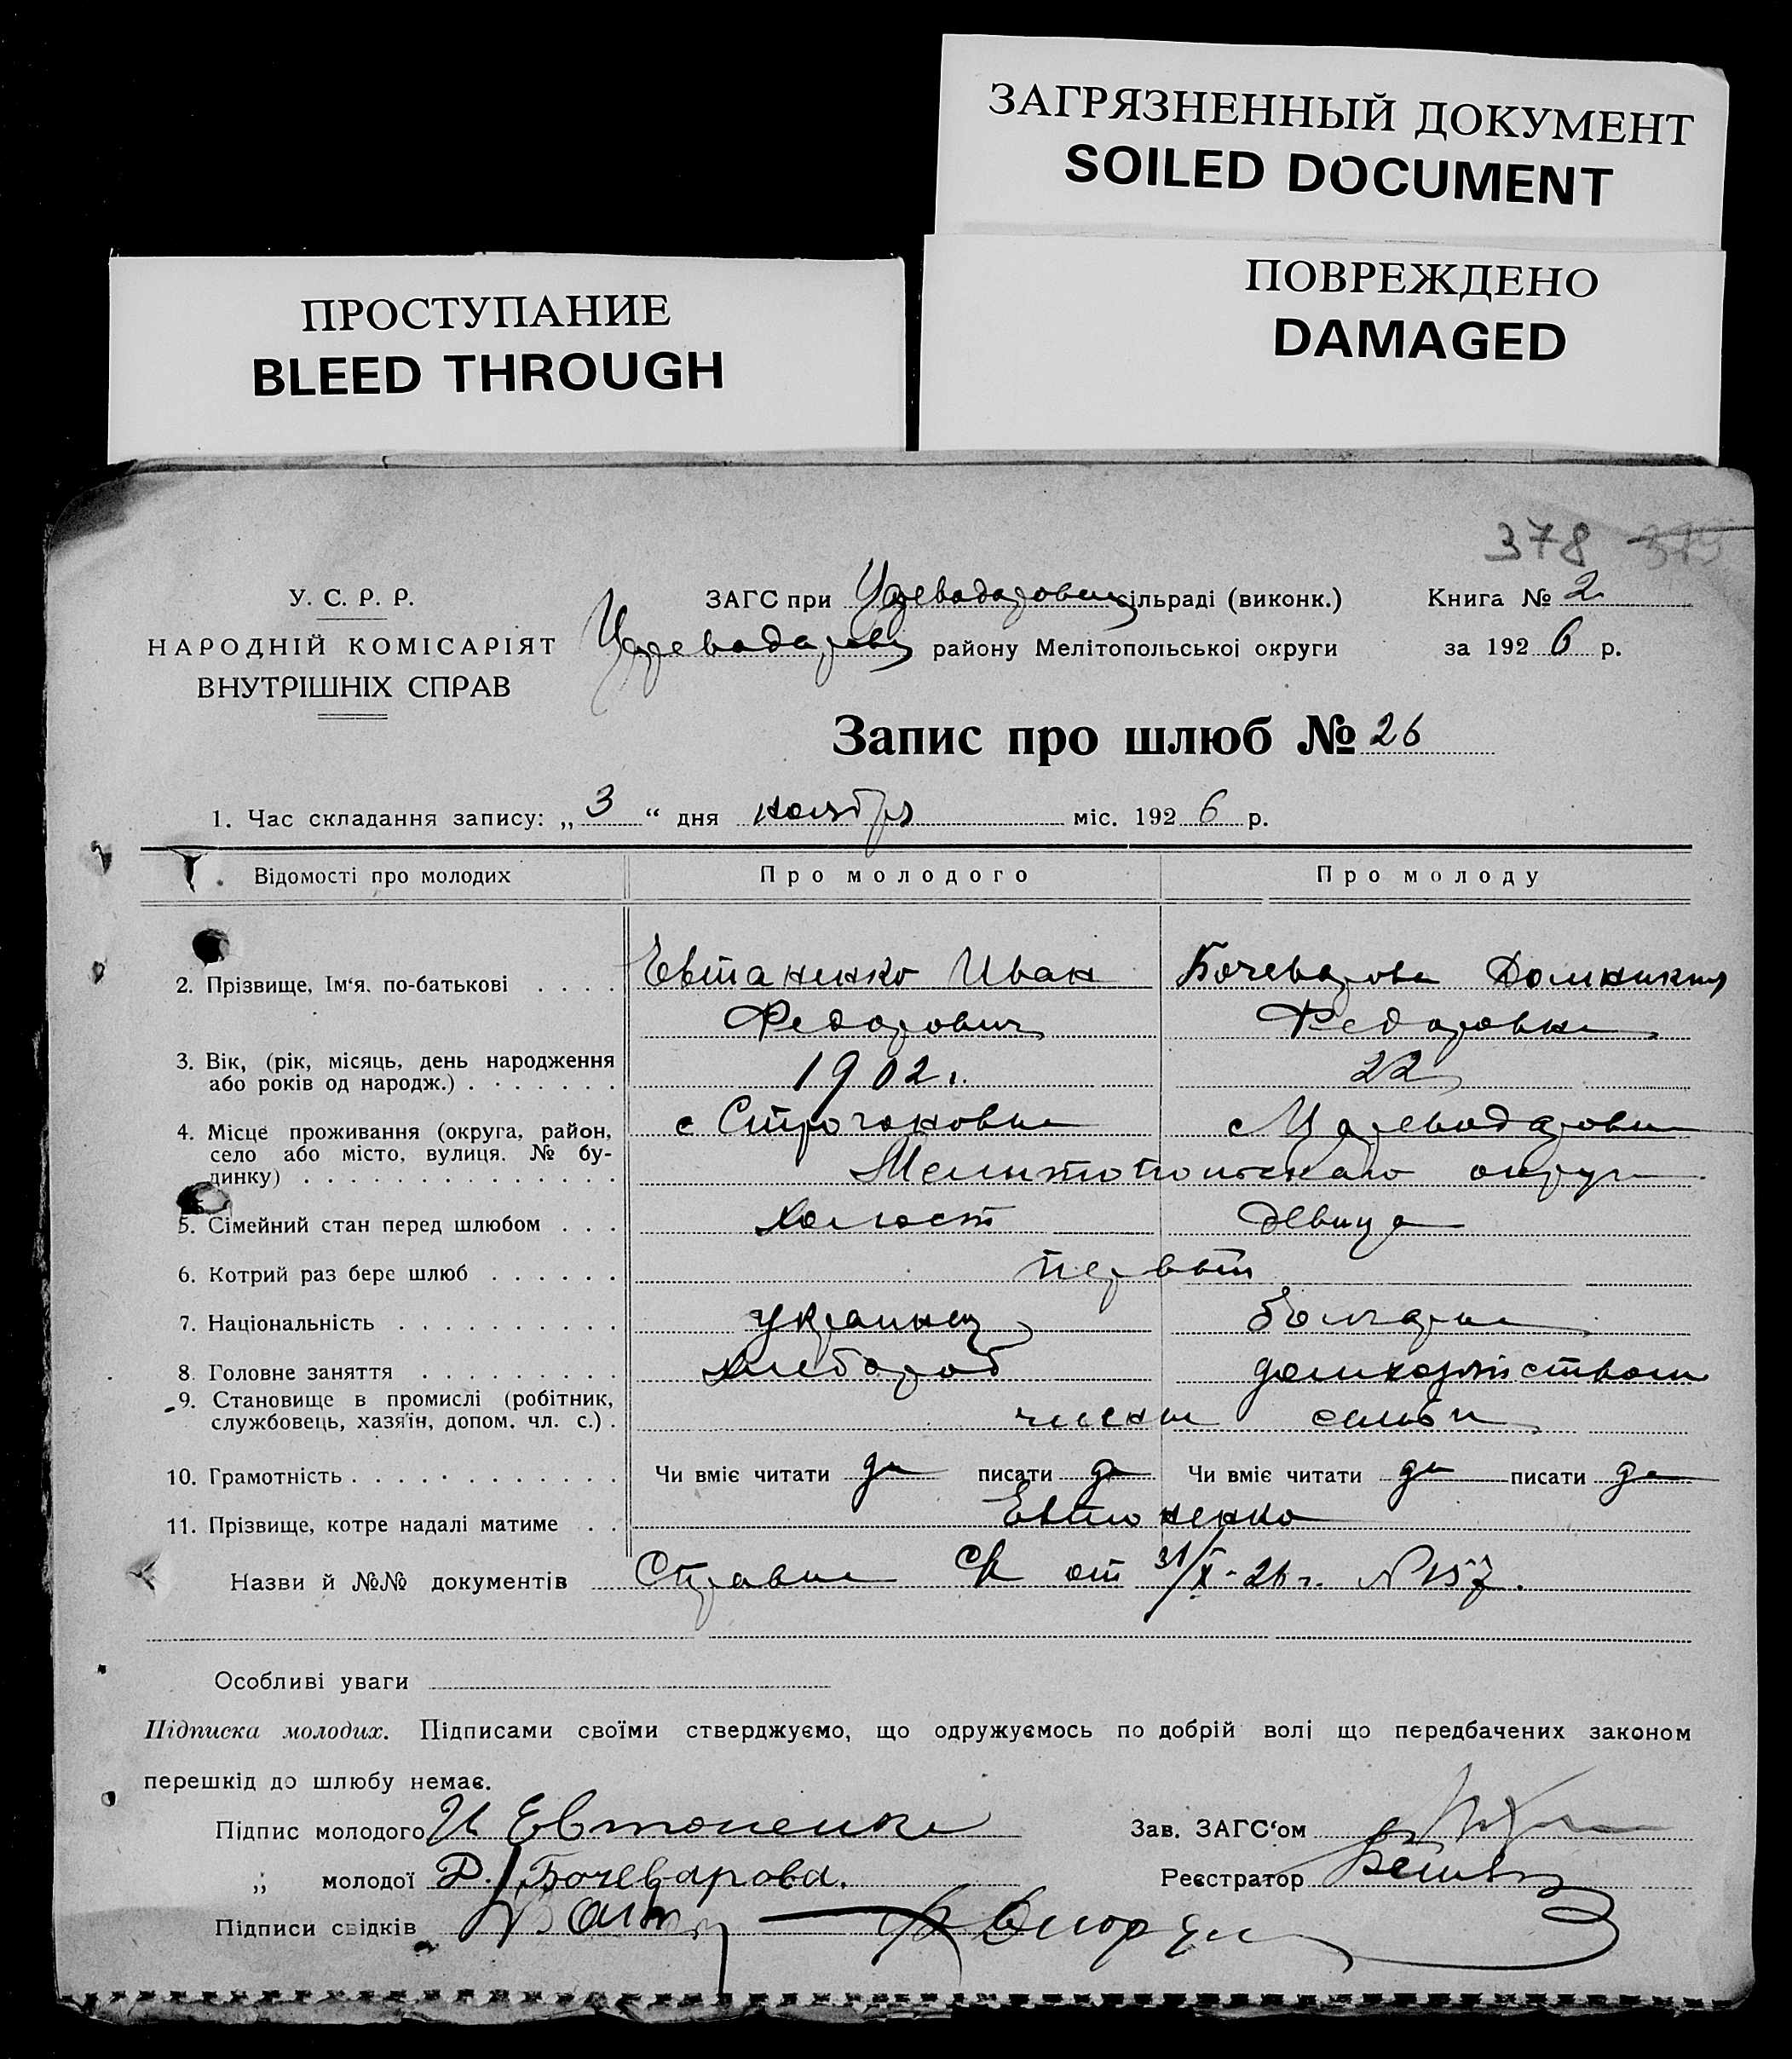 ЗАГРЯЗНЕННЫЙ ДОКУМЕНТ
SOILED DOCUMENT
ПОВРЕЖДЕНО
DAMAGED
ПРОСТУПАНИЕ
BLEED THROUGH
378 375
У. С. Р. Р.
НАРОДНІЙ КОМІСАРІЯТ
ВНУТРІШНІХ СПРАВ
ЗАГС при Царевадаровск сільраді (виконк.)
Царевадаров району Мелітопольської округи
Книга № 2
за 1926 р.
Запис про шлюб № 26
1. Час складання запису: „3“ дня ноября міс. 1926 р.
Відомості про молодих Про молодого Про молоду
2. Прізвище, Ім'я, по-батькові . . . . Евтаненко Иван Бочеварова Домникия
Федорович Федоровна
3. Вік, (рік, місяць, день народження
або років од народж.) . . . . . . . 1902 г. 22
4. Місце проживання (округа, район,
село або місто, вулиця. № бу-
динку) . . . . . . . . . . . . . .
с Строгановка с Царевадаровка
Мелитопольскаго округа
5. Сімейний стан перед шлюбом . . . Холост Девица
6. Котрий раз бере шлюб . . . . . . первый
7. Національність . . . . . . . . . . украинец болгарка
8. Головне заняття . . . . . . . . . хлебороб домхозяйством
9. Становище в промислі (робітник,
службовець, хазяїн, допом. чл. с.) . члены семьи
10. Грамотність . . . . . . . . . . . . Чи вміє читати да писати да Чи вміє читати да писати да
11. Прізвище, котре надалі матиме . . Евтоненко
Назви й №№ документів Справка СК от 31/X-26 г. № 157.
Особливі уваги
Підписка молодих. Підписами своїми стверджуємо, що одружуємось по добрій волі що передбачених законом
перешкід до шлюбу немає.
Підпис молодого И Евтоненко
Зав. ЗАГС'ом
„ молодої Д. Бочеварова.
Реєстратор
Підписи свідків